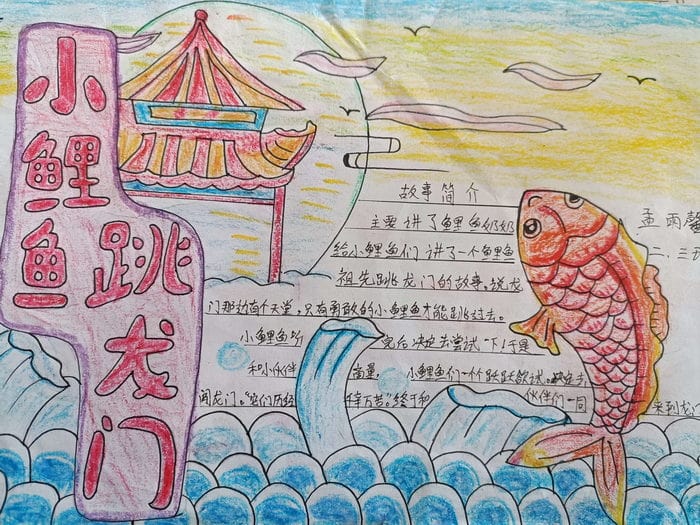 小鲤鱼
跳龙门
故事简介
主要讲了鲤鱼奶奶
给小鲤鱼们讲了一个鲤鱼
祖先跳龙门的故事。说龙
门那边有个天堂,只有勇敢的小鲤鱼才能跳过去。
小鲤鱼听完后决定去尝试一下!于是
和小伙伴商量,小鲤鱼们一个个跃跃欲试。决定去
闯龙门。它们历经千辛万苦。终于和伙伴们一同来到龙门
孟雨馨
二、三